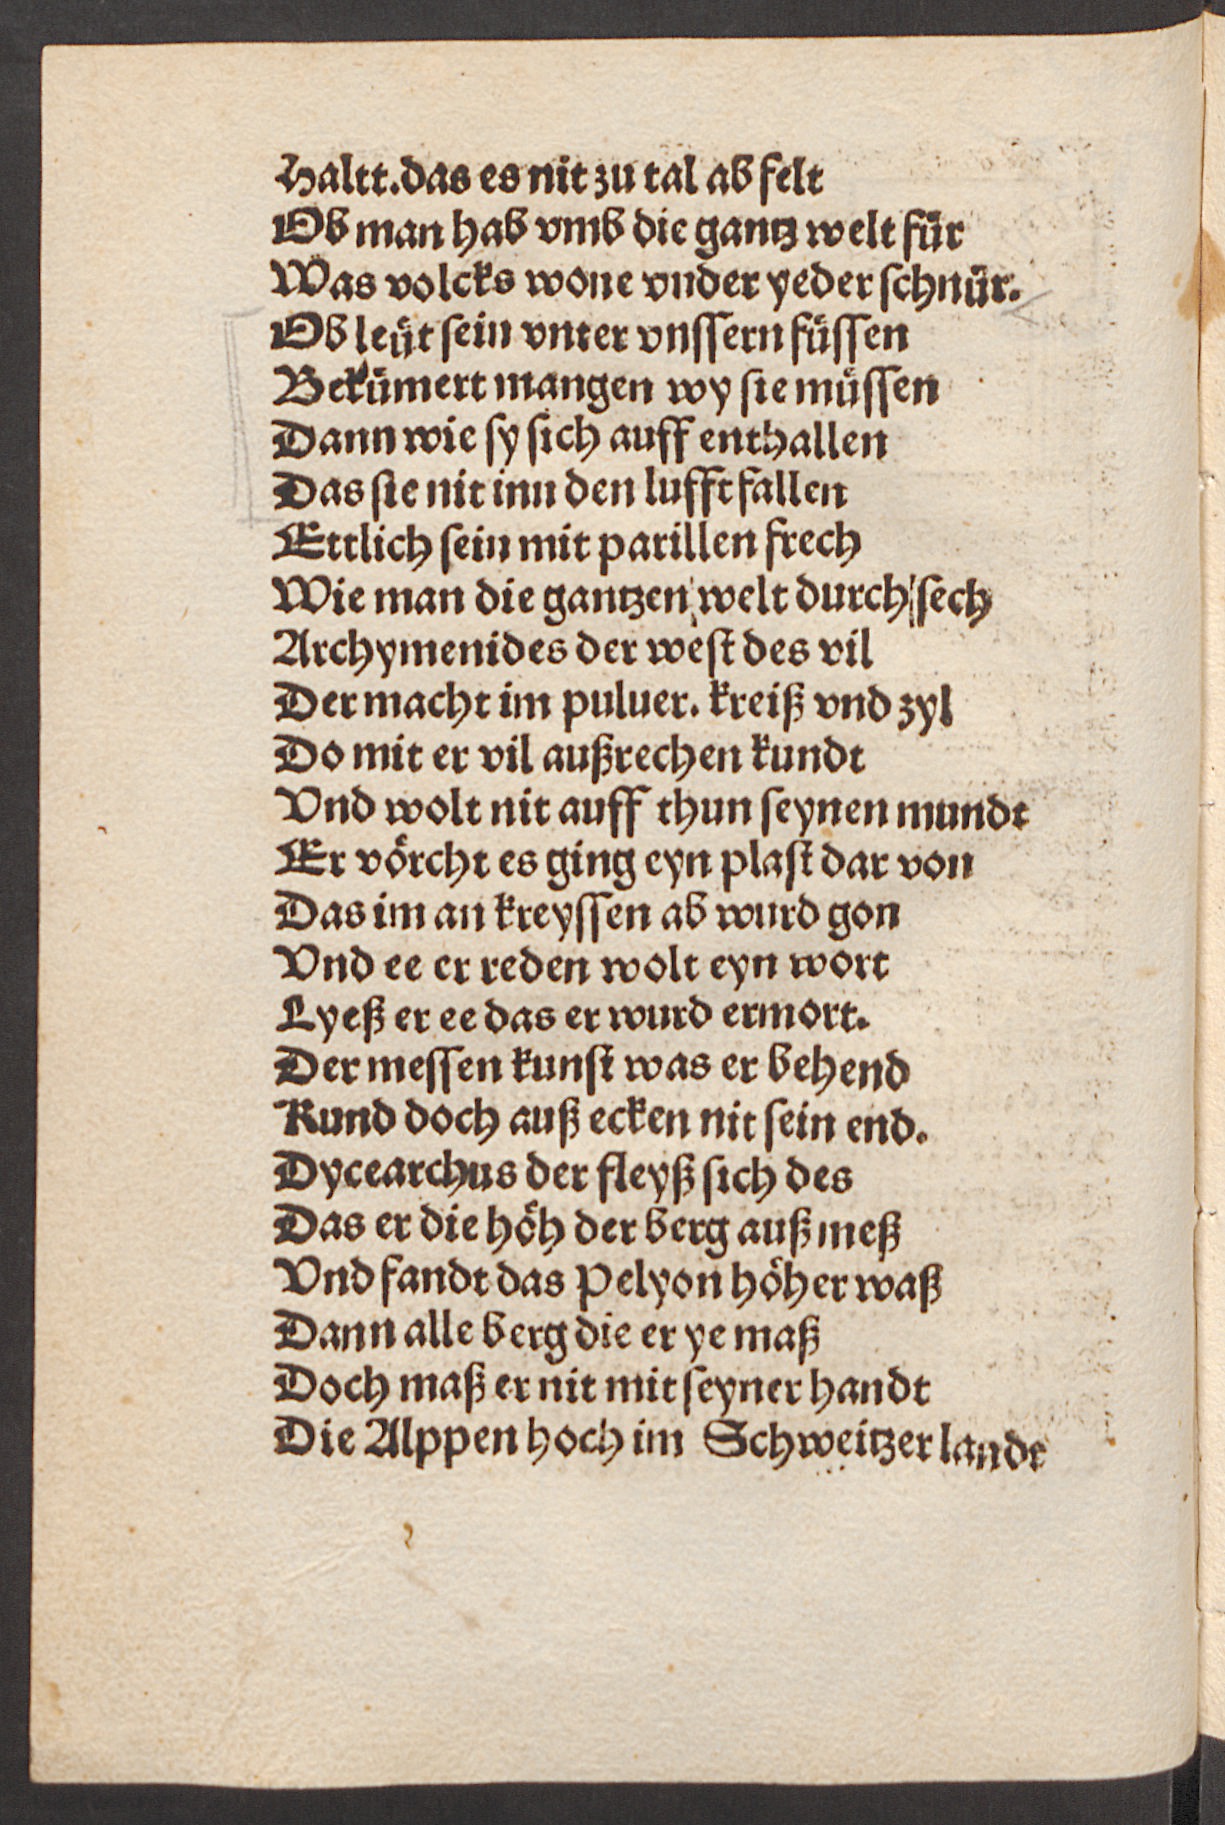 Haltt.das es nit zu tal ab felt
Ob man hab vmb die gantz welt für
Was volcks wone vnder yeder schnür.
Ob leüt sein vnter vnssern füssen
Bekümert mangen wy sie müssen
Dann wie sy sich auff enthallen
Das sie nit inn den lufft fallen
Ettlich sein mit parillen frech
Wie man die gantzen welt durch sech
Archymenides der west des vil
Der macht im puluer. kreiß vnd zyl
Do mit er vil außrechen kundt
Vnd wolt nit auff thun seynen mundt
Er vörcht es ging eyn plast dar von
Das im an kreyssen ab wurd gon
Vnd ee er reden wolt eyn wort
Lyeß er ee das er wurd ermort.
Der messen kunst was er behend
Kund doch auß ecken nit sein end.
Dycearchus der fleyß sich des
Das er die höh der berg auß meß
Vnd fandt das Pelyon höher waß
Dann alle berg die er ye maß
Doch maß er nit mit seyner handt
Die Alppen hoch im Schweitzer landt